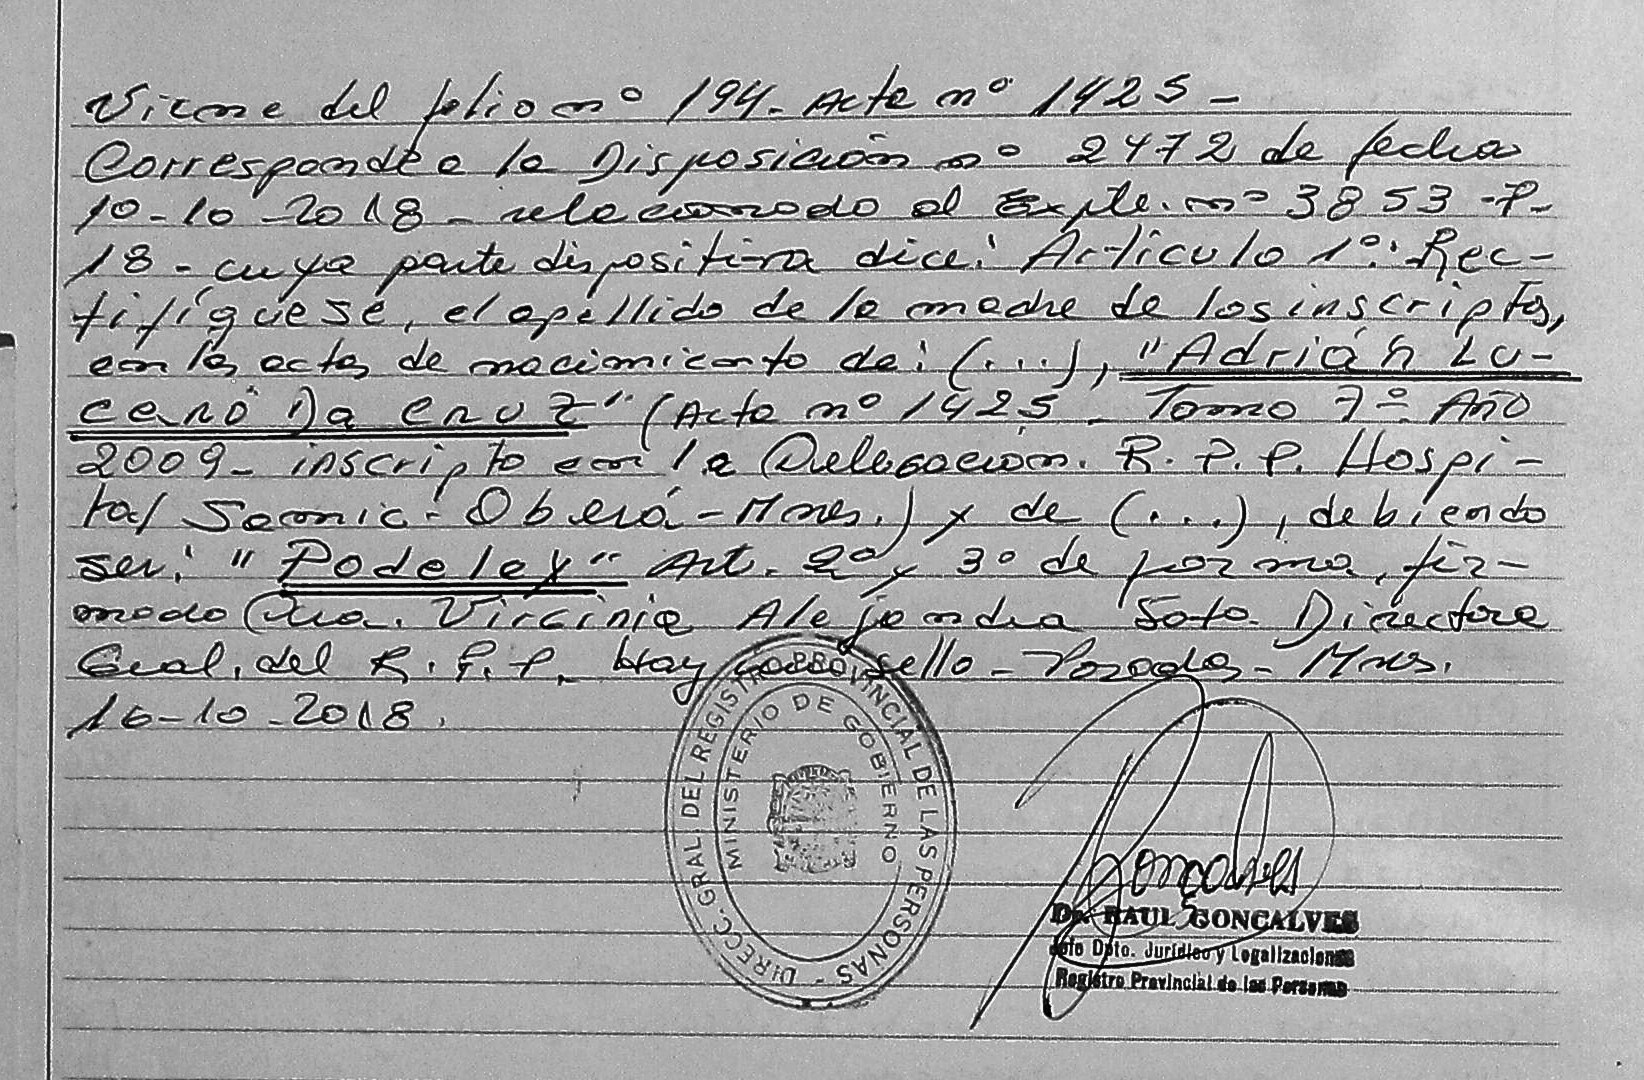 Viene del folio nº 194. Acta nº 1425 -
Corresponde a la Disposición nº 2472 de fecha
10-10-2018 - relacionado al Expte. nº 3853 -P-
18 - cuya parte dispositiva dice: Artículo 1º: Rec-
tifíquese, el apellido de la madre de los inscriptos,
en las actas de nacimiento de: (...), "Adrián Lu-
ceno Da Cruz" (Acta nº 1425 - Tomo 7º - Año
2009 - inscripto en la Delegación. R. P. P. Hospi-
tal Samic - Oberá - Mnes.) y de (...), debiendo
ser: "Podeley" Art. 2º y 3º de forma, fir-
mado Dra. Virginia Alejandra Soto. Directora
Gral. del R. P. P. Hay sello - Posadas - Mnes.
16-10-2018.
DIRECC. GRAL. DEL REGISTRO PROVINCIAL DE LAS PERSONAS -
MINISTERIO DE GOBIERNO
Goncalves
Dr. RAUL GONCALVES
Jefe Dpto. Jurídico y Legalizaciones
Registro Provincial de las Personas